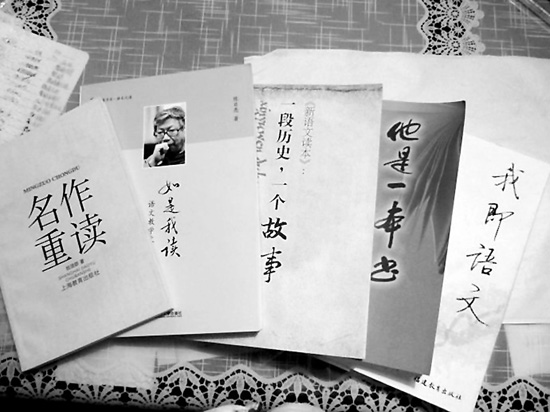 MINGZUO CHONGDU
名作
重读
上海教育出版社
如是我读
语文教学
《新语文读本》：
一段历史，一个
故事
他是一本书
我即语文
福建教育出版社